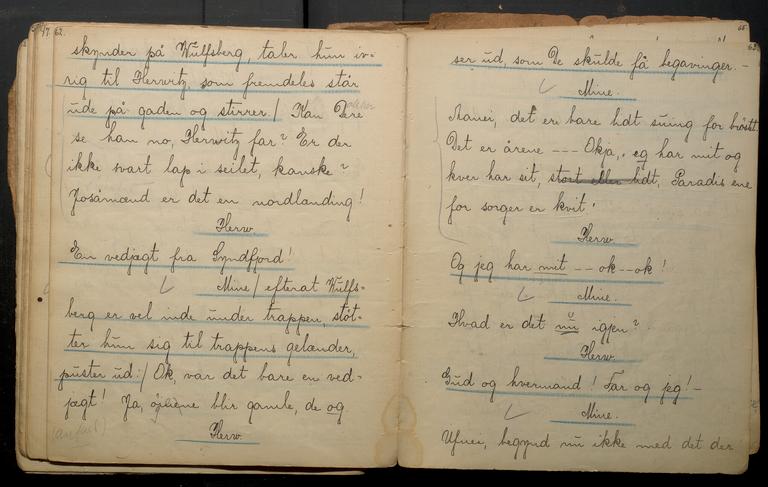 47. 62.
skynder på Wulfsberg, taler hun iv-
rig til Herwitz, som fremdeles står
ude på gaden og stirrer./ Kan Dere
se han no, Herwitz far? Er der
ikke svart lap i seilet, kanske?
Josåmænd er det en nordlanding!
Herw.
En vedjægt fra Syndfjord!
Mine/ efterat Wulfs-
berg er vel inde under trappen, støt-
ter hun sig til trappens gelænder,
puster ud:/ Ok, var det bare en ved-
jægt! Ja, øjnene blir gamle, de og
Herw.
ser ud, som De skulde få begavinger. –
Mine.
Aanei, det er bare lidt suing for brøstt.
Det er årene --- Okja, eg har mit og
kver har sit, stort eller lidt, Paradis ene
for sorger er kvit.
Herw.
Og jeg har mit -- ok--ok!
Mine.
Hvad er det nu igjen?
Herw.
Gud og hvermand! Far og jeg! –
Mine.
Ufnei, begynd nu ikke med det der